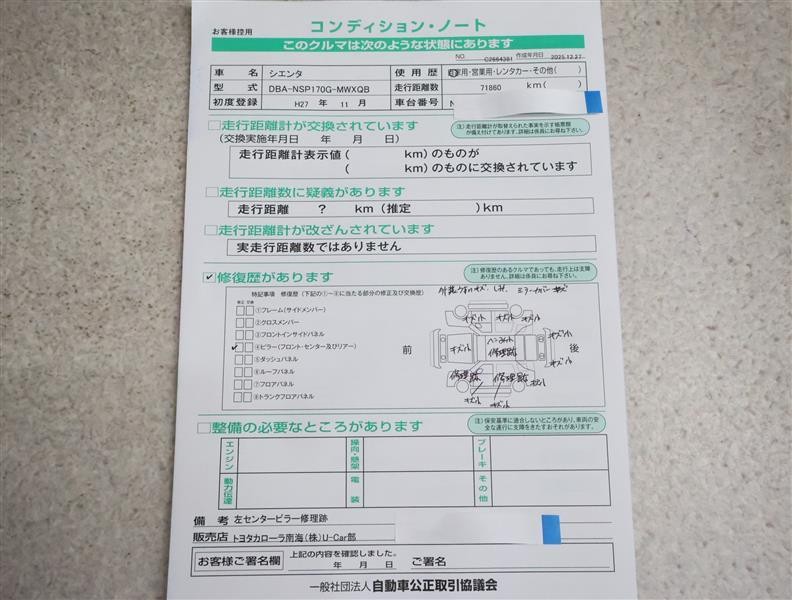 コンディション・ノート
お客様控用
このクルマは次のような状態にあります
NO. C2664381 作成年月日 2025.12.27
車名 シエンタ 使用歴 自家用・営業用・レンタカー・その他( )
型式 DBA-NSP170G-MWXQB 走行距離数 71860 km( )
初度登録 H27 年 11 月 車台番号 N
走行距離計が交換されています
(交換実施年月日 年 月 日)
注)走行距離計が取替えられた事実を示す帳票類が備え付けてあります。詳細は係員にお尋ね下さい。
走行距離計表示値( km)のものが
( km)のものに交換されています
走行距離数に疑義があります
走行距離 ? km(推定 )km
走行距離計が改ざんされています
実走行距離数ではありません
✓修復歴があります
注)修復歴のあるクルマであっても、走行上は支障ありません。詳細は係員にお尋ね下さい。
特記事項 修復歴(下記の①~⑧に当たる部分の修正及び交換歴)
修正 交換
①フレーム(サイドメンバー)
②クロスメンバー
③フロントインサイドパネル
✓ ④ピラー(フロント・センター及びリアー)
⑤ダッシュパネル
⑥ルーフパネル
⑦フロアパネル
⑧トランクフロアパネル
ミラーカバー キズ
キズ小 キズ小 キズ小
前 キズ小 修理跡 キズ小 後
キズ小
修理跡 修理跡 キズ小
キズ小 キズ小
整備の必要なところがあります
注)保安基準に適合しないところがあり、車両の安全な運行に支障をきたすおそれがあります。
エンジン 操向・懸架 ブレーキ
動力伝達 電装 その他
備考 左センターピラー修理跡
販売店 トヨタカローラ南海(株)U-Car部
お客様ご署名欄 上記の内容を確認しました。
年 月 日 ご署名
一般社団法人 自動車公正取引協議会